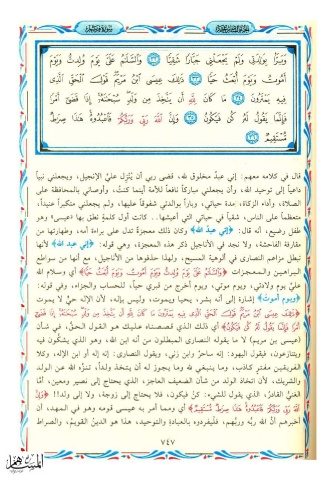 وَبَرًّا بِوَالِدَتِي وَلَمْ يَجْعَلْنِي جَبَّارًا شَقِيًّا ﴿٣٢﴾ وَالسَّلَامُ عَلَيَّ يَوْمَ وُلِدتُّ وَيَوْمَ
أَمُوتُ وَيَوْمَ أُبْعَثُ حَيًّا ﴿٣٣﴾ ذَٰلِكَ عِيسَى ابْنُ مَرْيَمَ قَوْلَ الْحَقِّ الَّذِي
فِيهِ يَمْتَرُونَ ﴿٣٤﴾ مَا كَانَ لِلَّهِ أَن يَتَّخِذَ مِن وَلَدٍ سُبْحَانَهُ إِذَا قَضَىٰ أَمْرًا
فَإِنَّمَا يَقُولُ لَهُ كُن فَيَكُونُ ﴿٣٥﴾ وَإِنَّ اللَّهَ رَبِّي وَرَبُّكُمْ فَاعْبُدُوهُ هَٰذَا صِرَاطٌ
مُّسْتَقِيمٌ ﴿٣٦﴾
قال في كلامه معهم: إني عبدٌ مخلوق لله، قضى ربي أن يُنزل عليَّ الإنجيل، ويجعلني نبياً
داعياً إلى توحيد الله، وأن يجعلني مباركاً نافعاً للأمة أينما كنتُ، وأوصاني بالمحافظة على
الصلاة، وأداء الزكاة، مدة حياتي، وباراً بوالدتي شفوقاً عليها، ولم يجعلني متكبراً عنيداً،
متعظماً على الناس، شقياً في حياتي التي أعيشها.. كانت أول كلمةٍ نطق بها «عيسى» وهو
طفل رضيع، أنه قال: ﴿إني عبدُ الله﴾ وكان ذلك معجزةً تدل على براءة أمه، وطهارتها من
مقارفة الفاحشة، ولا نجد في الأناجيل ذكر هذه المعجزة، وهي قوله: ﴿إني عبد الله﴾ لأنها
تبطل مزاعم النصارى في ألوهية المسيح، ولهذا حذفوها من الأناجيل، مع أنها من سواطع
البراهين والمعجزات ﴿والسلام عليَّ يوم ولدتُ ويوم أموت ويوم أبعث حياً﴾ أي وسلام الله
عليَّ يوم ولادتي، ويوم موتي، ويوم أخرج من قبري حياً، للحساب والجزاء، وفي قوله:
﴿ويوم أموت﴾ إشارة إلى أنه بشر، يحيا ويموت، وليس بإله، لأن الإله حيٌّ لا يموت
﴿ذلك عيسى ابن مريم قول الحق الذي فيه يمترون ما كان لله أن يتخذ من ولد سبحانه إذا قضى
أمراً فإنما يقول له كن فيكون﴾ أي ذلك الذي قصصناه عليك هو القول الحقُّ، في شأن
(عيسى بن مريم) لا ما يقوله النصارى المبطلون من أنه ابن الله، وهو الذي يشكُّون فيه
ويتنازعون، فيقول اليهود: إنه ساحرٌ وابن زنى، ويقول النصارى: إنه إله أو ابن الإله، وكلا
الفريقين مفترٍ كذاب، وما ينبغي لله وما يجوز له أن يتخذ ولداً، تنزَّه الله عن الولد
والشريك، لأن اتخاذ الولد من شأن الضعيف العاجز، الذي يحتاج إلى نصير ومعين، أمَّا
الغنيُّ القادرُ، الذي يقول للشيء: كنْ فيكون، فلا يحتاج إلى زوجة، ولا إلى ولد!! ﴿وإنَّ
الله ربي وربكم فاعبدوه هذا صراط مستقيم﴾ أي ومما أمر به عيسى قومه وهو في المهد، أن
أخبرهم أنَّ الله ربُّه وربُّهم، فليفردوه بالعبادة والتوحيد، هذا هو الدينُ القويمُ، والصراط
٧٤٧